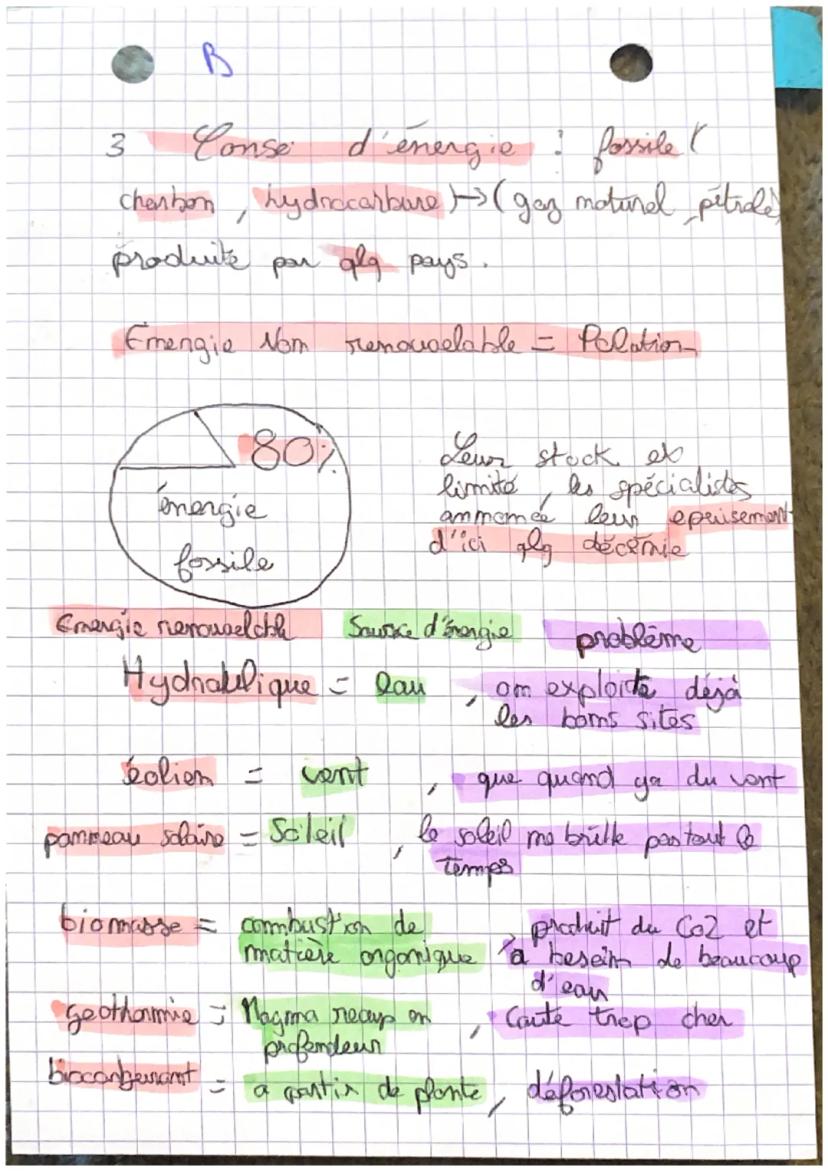 B
3 Conso d'énergie : fossile (
charbon, hydrocarbure) → (gaz naturel, pétrole)
produite par qlq pays.
Energie Non renouvelable = Polution
80%
énergie
fossile
Leur stock et
limité, les spécialistes
annonce leur epuisement
d'ici qlq décénie
Energie renouvelable Source d'énergie problème
Hydraulique = eau, on exploite déjà
les bons sites
éolien = vent, que quand ya du vent
panneau solaire = Soleil, le soleil ne brille pas tout le
temps
biomasse = combustion de
matière organique, produit du Co2 et
a besoin de beaucoup
d'eau
geothermie = Magma recup en
profondeur, Coute trop cher
biocarburant = a partir de plante, déforestation